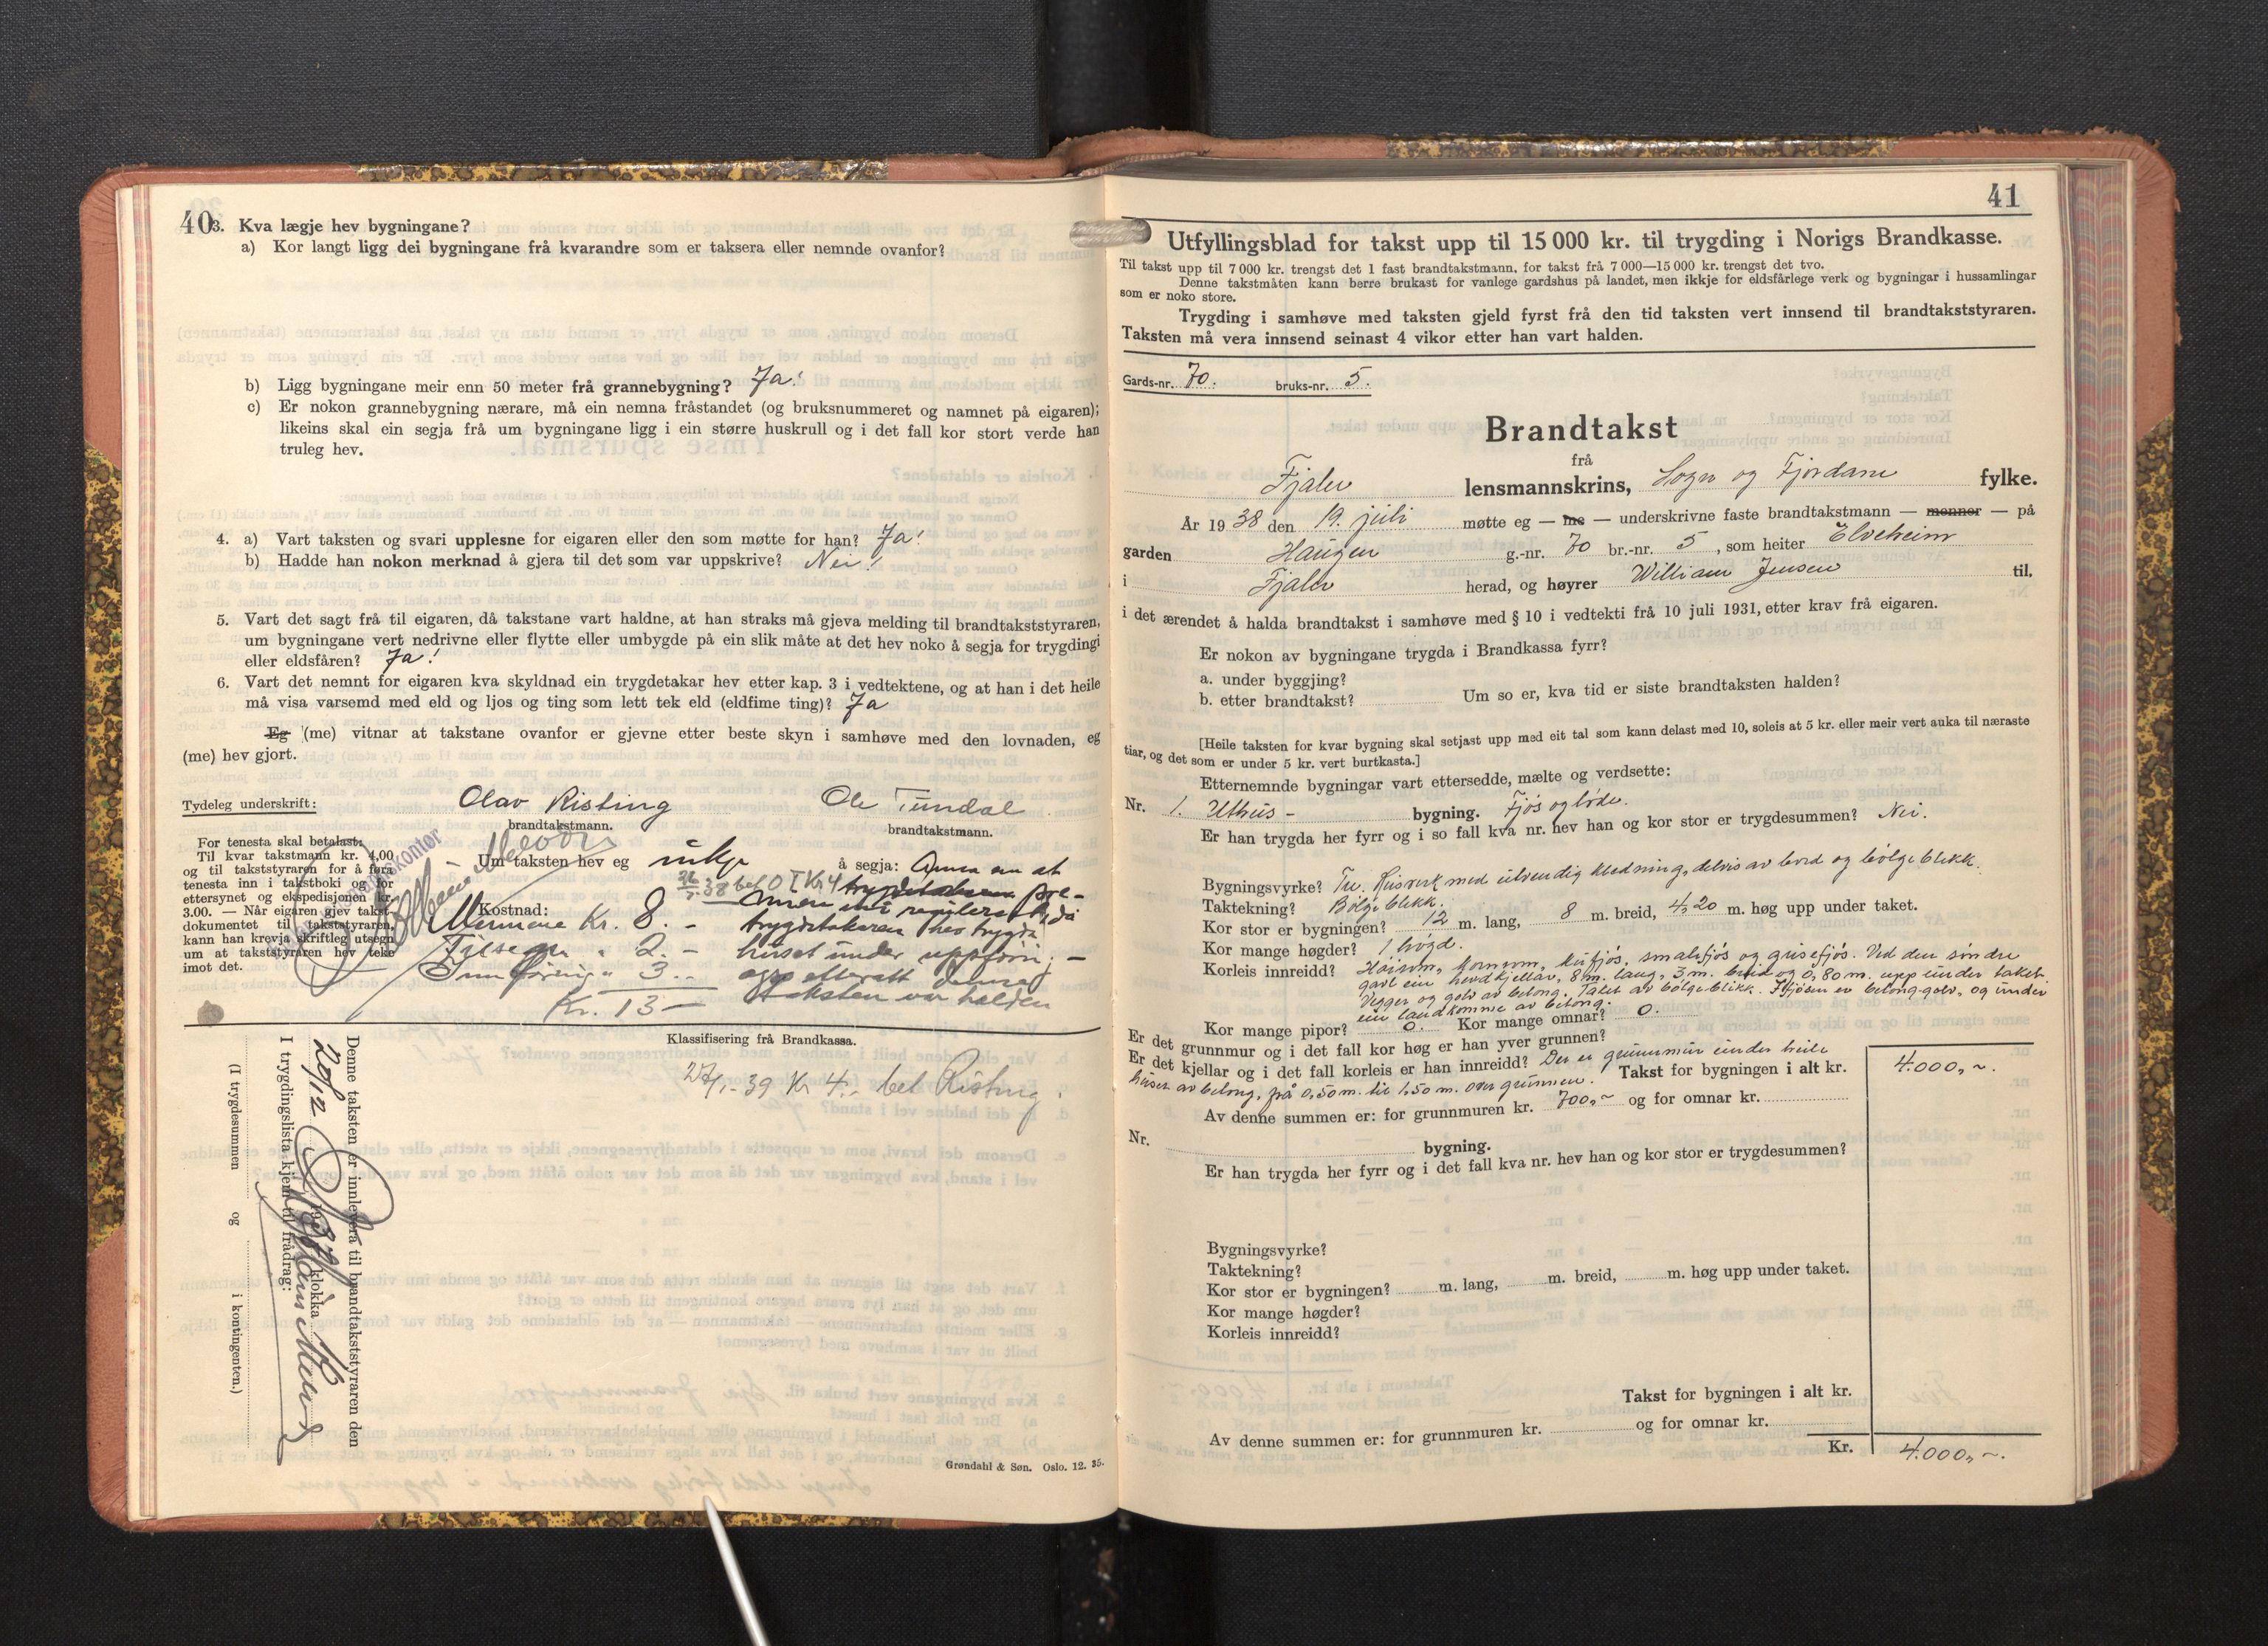 40
3. Kva lægje hev bygningane?
a) Kor langt ligg dei bygningane frå kvarandre som er taksera eller nemnde ovanfor?
b) Ligg bygningane meir enn 50 meter frå grannebygning? Ja!
c) Er nokon grannebygning nærare, må ein nemna fråstandet (og bruksnummeret og namnet på eigaren);
likeins skal ein segja frå um bygningane ligg i ein større huskrull og i det fall kor stort verde han
truleg hev.
4. a) Vart taksten og svari upplesne for eigaren eller den som møtte for han? Ja!
b) Hadde han nokon merknad å gjera til det som var uppskrive? Nei!
5. Vart det sagt frå til eigaren, då takstane vart haldne, at han straks må gjeva melding til brandtakststyraren,
um bygningane vert nedrivne eller flytte eller umbygde på ein slik måte at det hev noko å segja for trygdingi
eller eldsfåren? Ja!
6. Vart det nemnt for eigaren kva skyldnad ein trygdetakar hev etter kap. 3 i vedtektene, og at han i det heile
må visa varsemd med eld og ljos og ting som lett tek eld (eldfime ting)? Ja
Eg (me) vitnar at takstane ovanfor er gjevne etter beste skyn i samhøve med den lovnaden, eg
(me) hev gjort.
Tydeleg underskrift: Olav Risting Ole Tundal
brandtakstmann. brandtakstmann.
For tenesta skal betalast:
Til kvar takstmann kr. 4,00
og til takststyraren for å føra
tenesta inn i takstboki og for
ettersynet og ekspedisjonen kr.
3.00. — Når eigaren gjev takst-
dokumentet til takststyraren,
kann han krevja skriftleg utsegn
um at takststyraren hev teke
imot det.
Um taksten hev eg inkje å segja: Annen enn at
trygdetakaren
Kostnad:
Mennene Kr. 8.-
trygdetakaren hev trygda
2.-
huset under uppføring
3.-
etteratt denne
Kr. 13-
taksten var halden
Klassifisering frå Brandkassa.
27/1-39 Kr 4.- bet Risting.
Denne taksten er innlevera til brandtakststyraren den
klokka
I trygdingslista kjem til frådrag:
(I trygdesummen og i kontingenten.)
Grøndahl & Søn. Oslo. 12. 35.
41
Utfyllingsblad for takst upp til 15 000 kr. til trygding i Norigs Brandkasse.
Til takst upp til 7 000 kr. trengst det 1 fast brandtakstmann, for takst frå 7 000—15 000 kr. trengst det tvo.
Denne takstmåten kann berre brukast for vanlege gardshus på landet, men ikkje for eldsfårlege verk og bygningar i hussamlingar
som er noko store.
Trygding i samhøve med taksten gjeld fyrst frå den tid taksten vert innsend til brandtakststyraren.
Taksten må vera innsend seinast 4 vikor etter han vart halden.
Gards-nr. 70. bruks-nr. 5.
Brandtakst
frå
Fjaler lensmannskrins, Sogn og Fjordane fylke.
År 1938 den 19. juli møtte eg — me — underskrivne faste brandtakstmann — menner — på
garden Haugen g.-nr. 70 br.-nr. 5, som heiter Elveheim
i Fjaler herad, og høyrer William Jensen til.
i det ærendet å halda brandtakst i samhøve med § 10 i vedtekti frå 10 juli 1931, etter krav frå eigaren.
Er nokon av bygningane trygda i Brandkassa fyrr?
a. under byggjing?
b. etter brandtakst? Um so er, kva tid er siste brandtaksten halden?
[Heile taksten for kvar bygning skal setjast upp med eit tal som kann delast med 10, soleis at 5 kr. eller meir vert auka til næraste
tiar, og det som er under 5 kr. vert burtkasta.]
Etternemnde bygningar vart ettersedde, mælte og verdsette:
Nr. 1. Uthus- bygning. Fjøs og løde.
Er han trygda her fyrr og i so fall kva nr. hev han og kor stor er trygdesummen? Nei.
Bygningsvyrke? Tre. Reisverk med utvendig kledning, delvis av bord og bølgeblikk.
Taktekning? Bølgeblikk.
Kor stor er bygningen? 12 m. lang, 8 m. breid, 4,20 m. høg upp under taket.
Kor mange høgder? 1 høgd.
Korleis innreidd? Høirom, kornrom, kufjøs, smalefjøs og grisefjøs. Ved den søndre
gavl ein hevdkjellar, 8 m. lang, 3 m. breid og 0,80 m. upp under taket.
Vegger og golv av betong. Taket av bølgeblikk. I fjøsen er betonggolv, og under
ein landkomme av betong.
Kor mange pipor? 0. Kor mange omnar? 0.
Er det grunnmur og i det fall kor høg er han yver grunnen?
Er det kjellar og i det fall korleis er han innreidd? Der er grunnmur under heile
huset av betong, frå 0,50 m. til 1,50 m. over grunnen. Takst for bygningen i alt kr. 4.000,-.
Av denne summen er: for grunnmuren kr. 700,- og for omnar kr.
Nr. bygning.
Er han trygda her fyrr og i det fall kva nr. hev han og kor stor er trygdesummen?
Bygningsvyrke?
Taktekning?
Kor stor er bygningen? m. lang, m. breid, m. høg upp under taket.
Kor mange høgder?
Korleis innreidd?
Takst for bygningen i alt kr.
Av denne summen er: for grunnmuren kr. og for omnar kr.
Kr. 4.000,-.